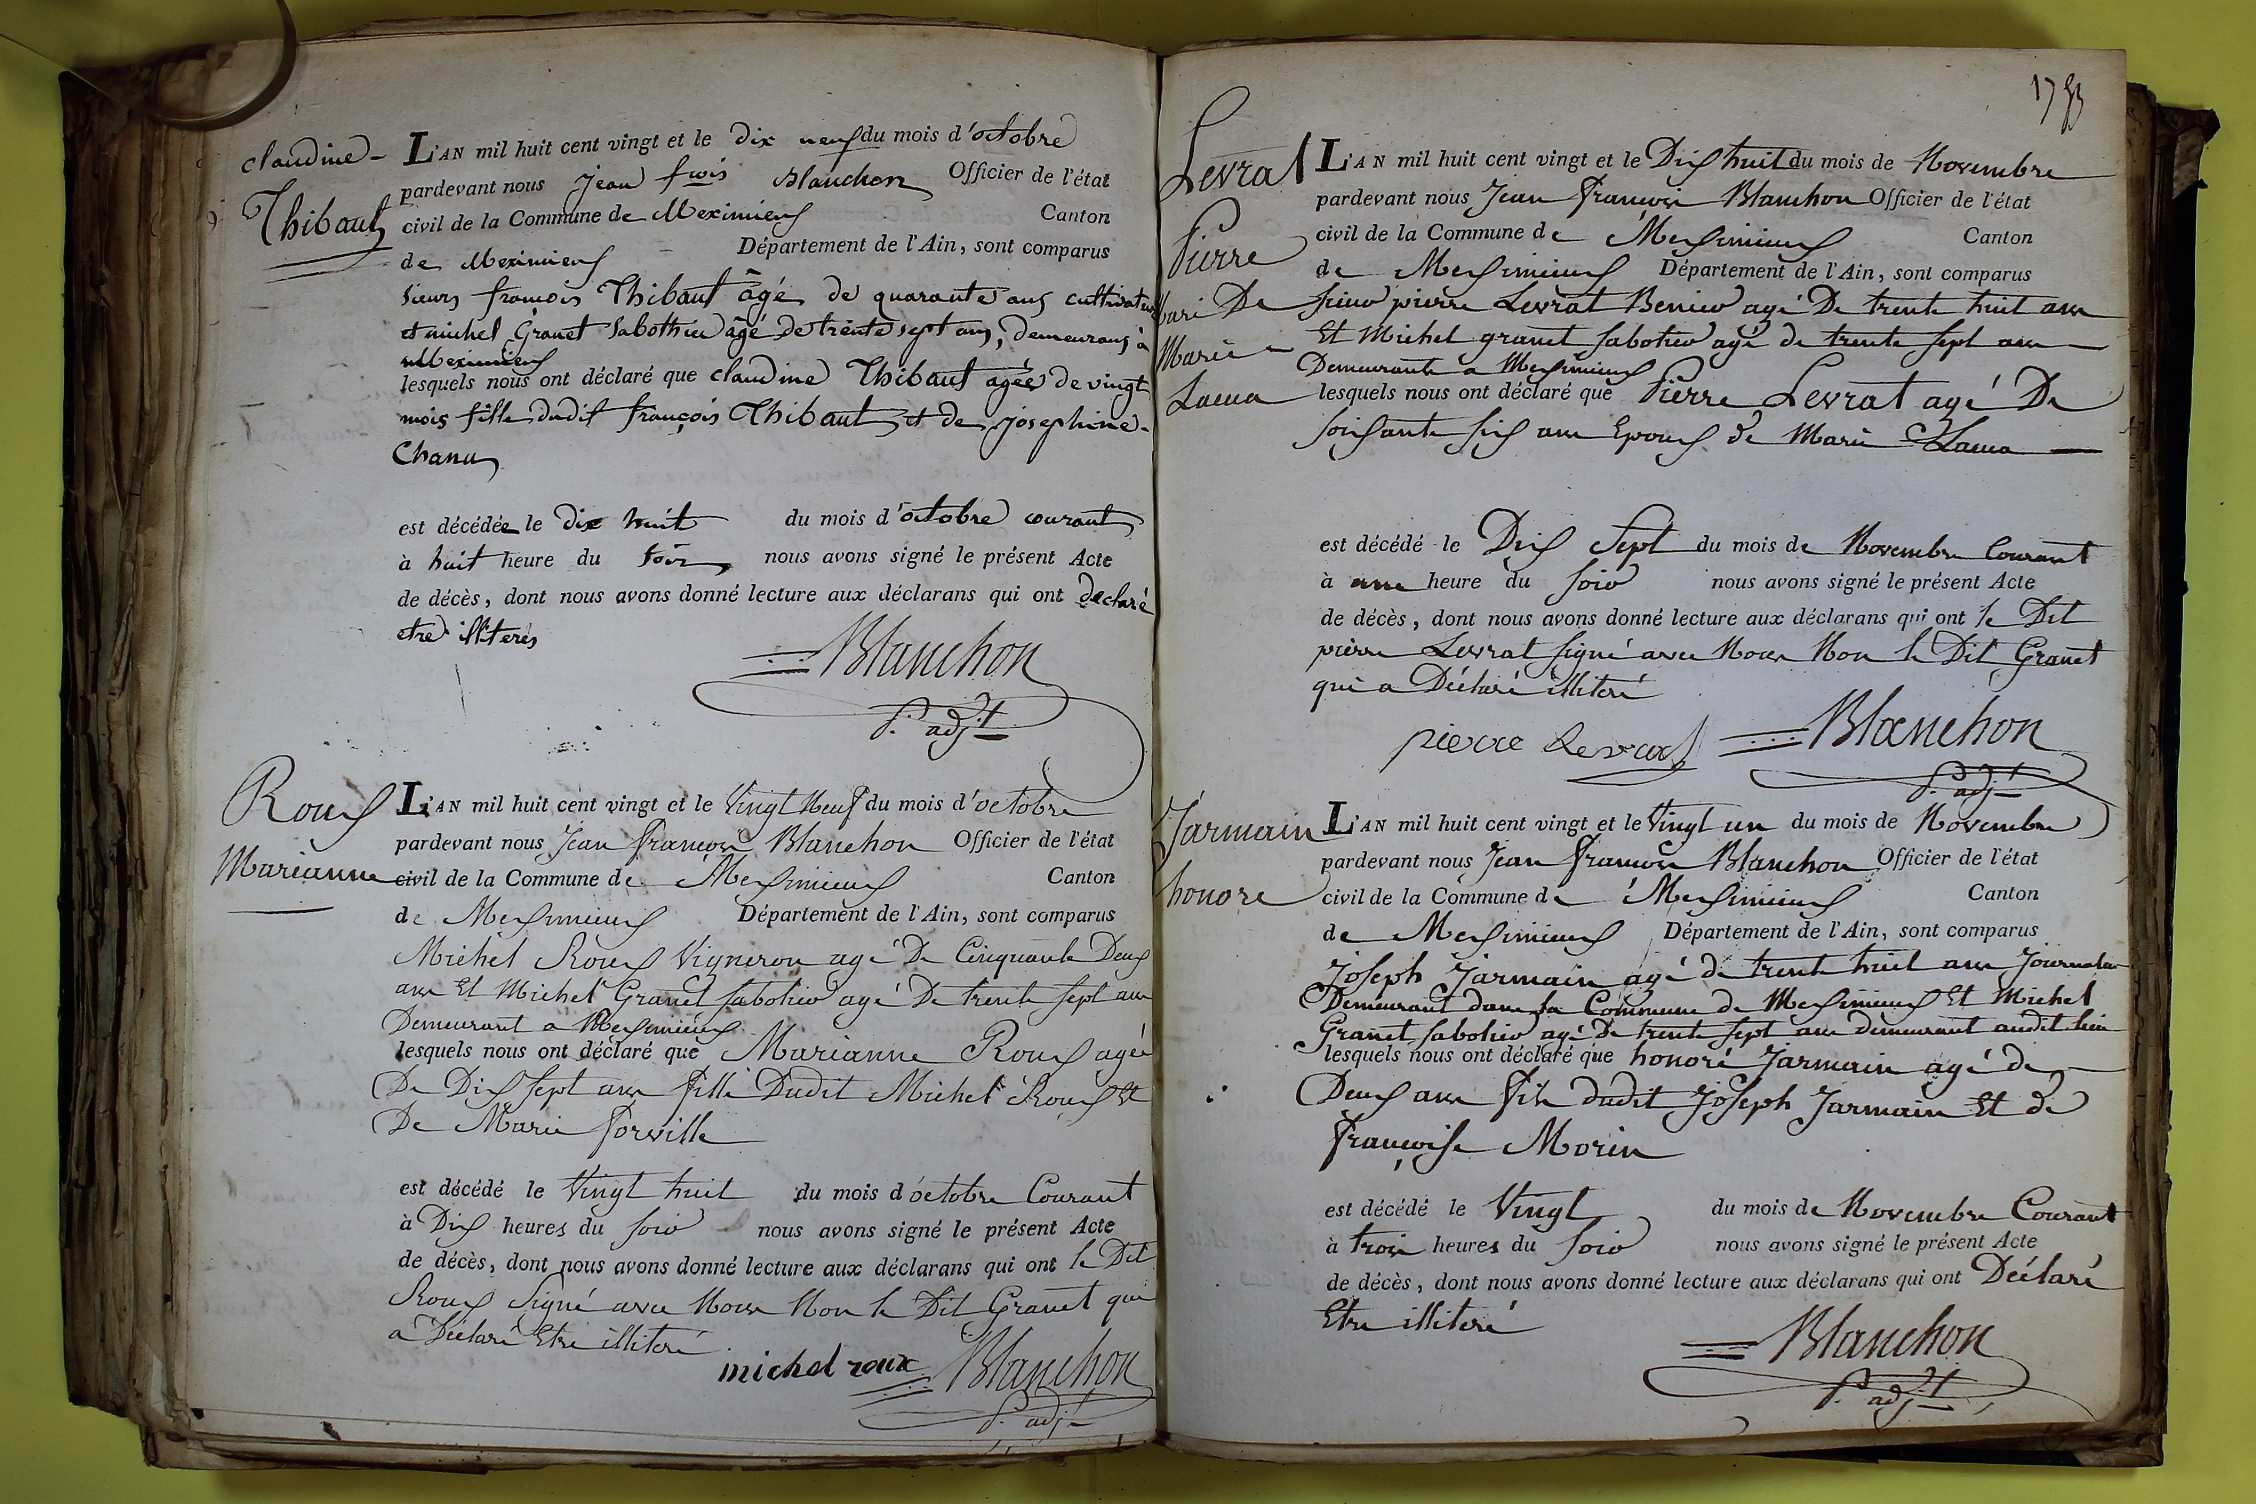 claudine -
Thibaut
L'AN mil huit cent vingt et le dix neuf du mois d'octobre
pardevant nous Jean fcois Blanchon Officier de l'état
civil de la Commune de Meximieux Canton
de Meximieux Département de l'Ain, sont comparus
sieurs francois Thibaut âgé de quarante ans cultivateur
et michel Granet Sabothier âgé de trente sept ans, demeurans à
Meximieux
lesquels nous ont déclaré que claudine Thibaut agée de vingt
mois fille dudit françois Thibaut et de josephine
Chanu
est décédée le dix huit du mois d'octobre courant
à huit heure du soir nous avons signé le présent Acte
de décès, dont nous avons donné lecture aux déclarans qui ont declaré
etre illiterés
Blanchon
P. adjt
Roux
Marianne
L'AN mil huit cent vingt et le Vingt Neuf du mois d'octobre
pardevant nous Jean François Blanchon Officier de l'état
civil de la Commune de Meximieux Canton
de Meximieux Département de l'Ain, sont comparus
Michel Roux Vigneron agé De Cinquante Deux
ans Et Michel Granet sabotier agé De trente sept ans
Demeurant a Meximieux
lesquels nous ont déclaré que Marianne Roux agée
De Dix sept ans fille Dudit Michel Roux Et
De Marie forville
est décédé le Vingt huit du mois d'octobre Courant
à Dix heures du soir nous avons signé le présent Acte
de décès, dont nous avons donné lecture aux déclarans qui ont le Dit
Roux Signé avec Nous Non le Dit Granet qui
a Déclaré Etre illitéré
michel roux Blanchon
P. adjt
1793
Levrat
Pierre
mari De
Marie
L'AN mil huit cent vingt et le Dix huit du mois de Novembre
pardevant nous Jean François Blanchon Officier de l'état
civil de la Commune de Meximieux Canton
de Meximieux Département de l'Ain, sont comparus
sieur pierre Levrat agé De trente huit ans
Et Michel granet sabotier agé de trente sept ans
Demeurants a Meximieux
lesquels nous ont déclaré que Pierre Levrat agé De
soixante six ans Epoux de Marie
est décédé le Dix Sept du mois de Novembre Courant
à une heure du soir nous avons signé le présent Acte
de décès, dont nous avons donné lecture aux déclarans qui ont le Dit
pierre Levrat signé avec Nous Non le Dit Granet
qui a Déclaré illitéré
pierre Levrat Blanchon
P. adjt
Jarmain
honore
L'AN mil huit cent vingt et le Vingt un du mois de Novembre
pardevant nous Jean François Blanchon Officier de l'état
civil de la Commune de Meximieux Canton
de Meximieux Département de l'Ain, sont comparus
Joseph Jarmain agé de trente huit ans Journalier
Demeurant dans la Commune de Meximieux Et Michel
Granet sabotier agé De trente sept ans demeurant audit lieu
lesquels nous ont déclaré que honoré Jarmain agé de
Deux ans fils dudit Joseph Jarmain Et de
françoise Morin
est décédé le Vingt du mois de Novembre Courant
à trois heures du soir nous avons signé le présent Acte
de décès, dont nous avons donné lecture aux déclarans qui ont Déclaré
Etre illitéré
Blanchon
P. adjt